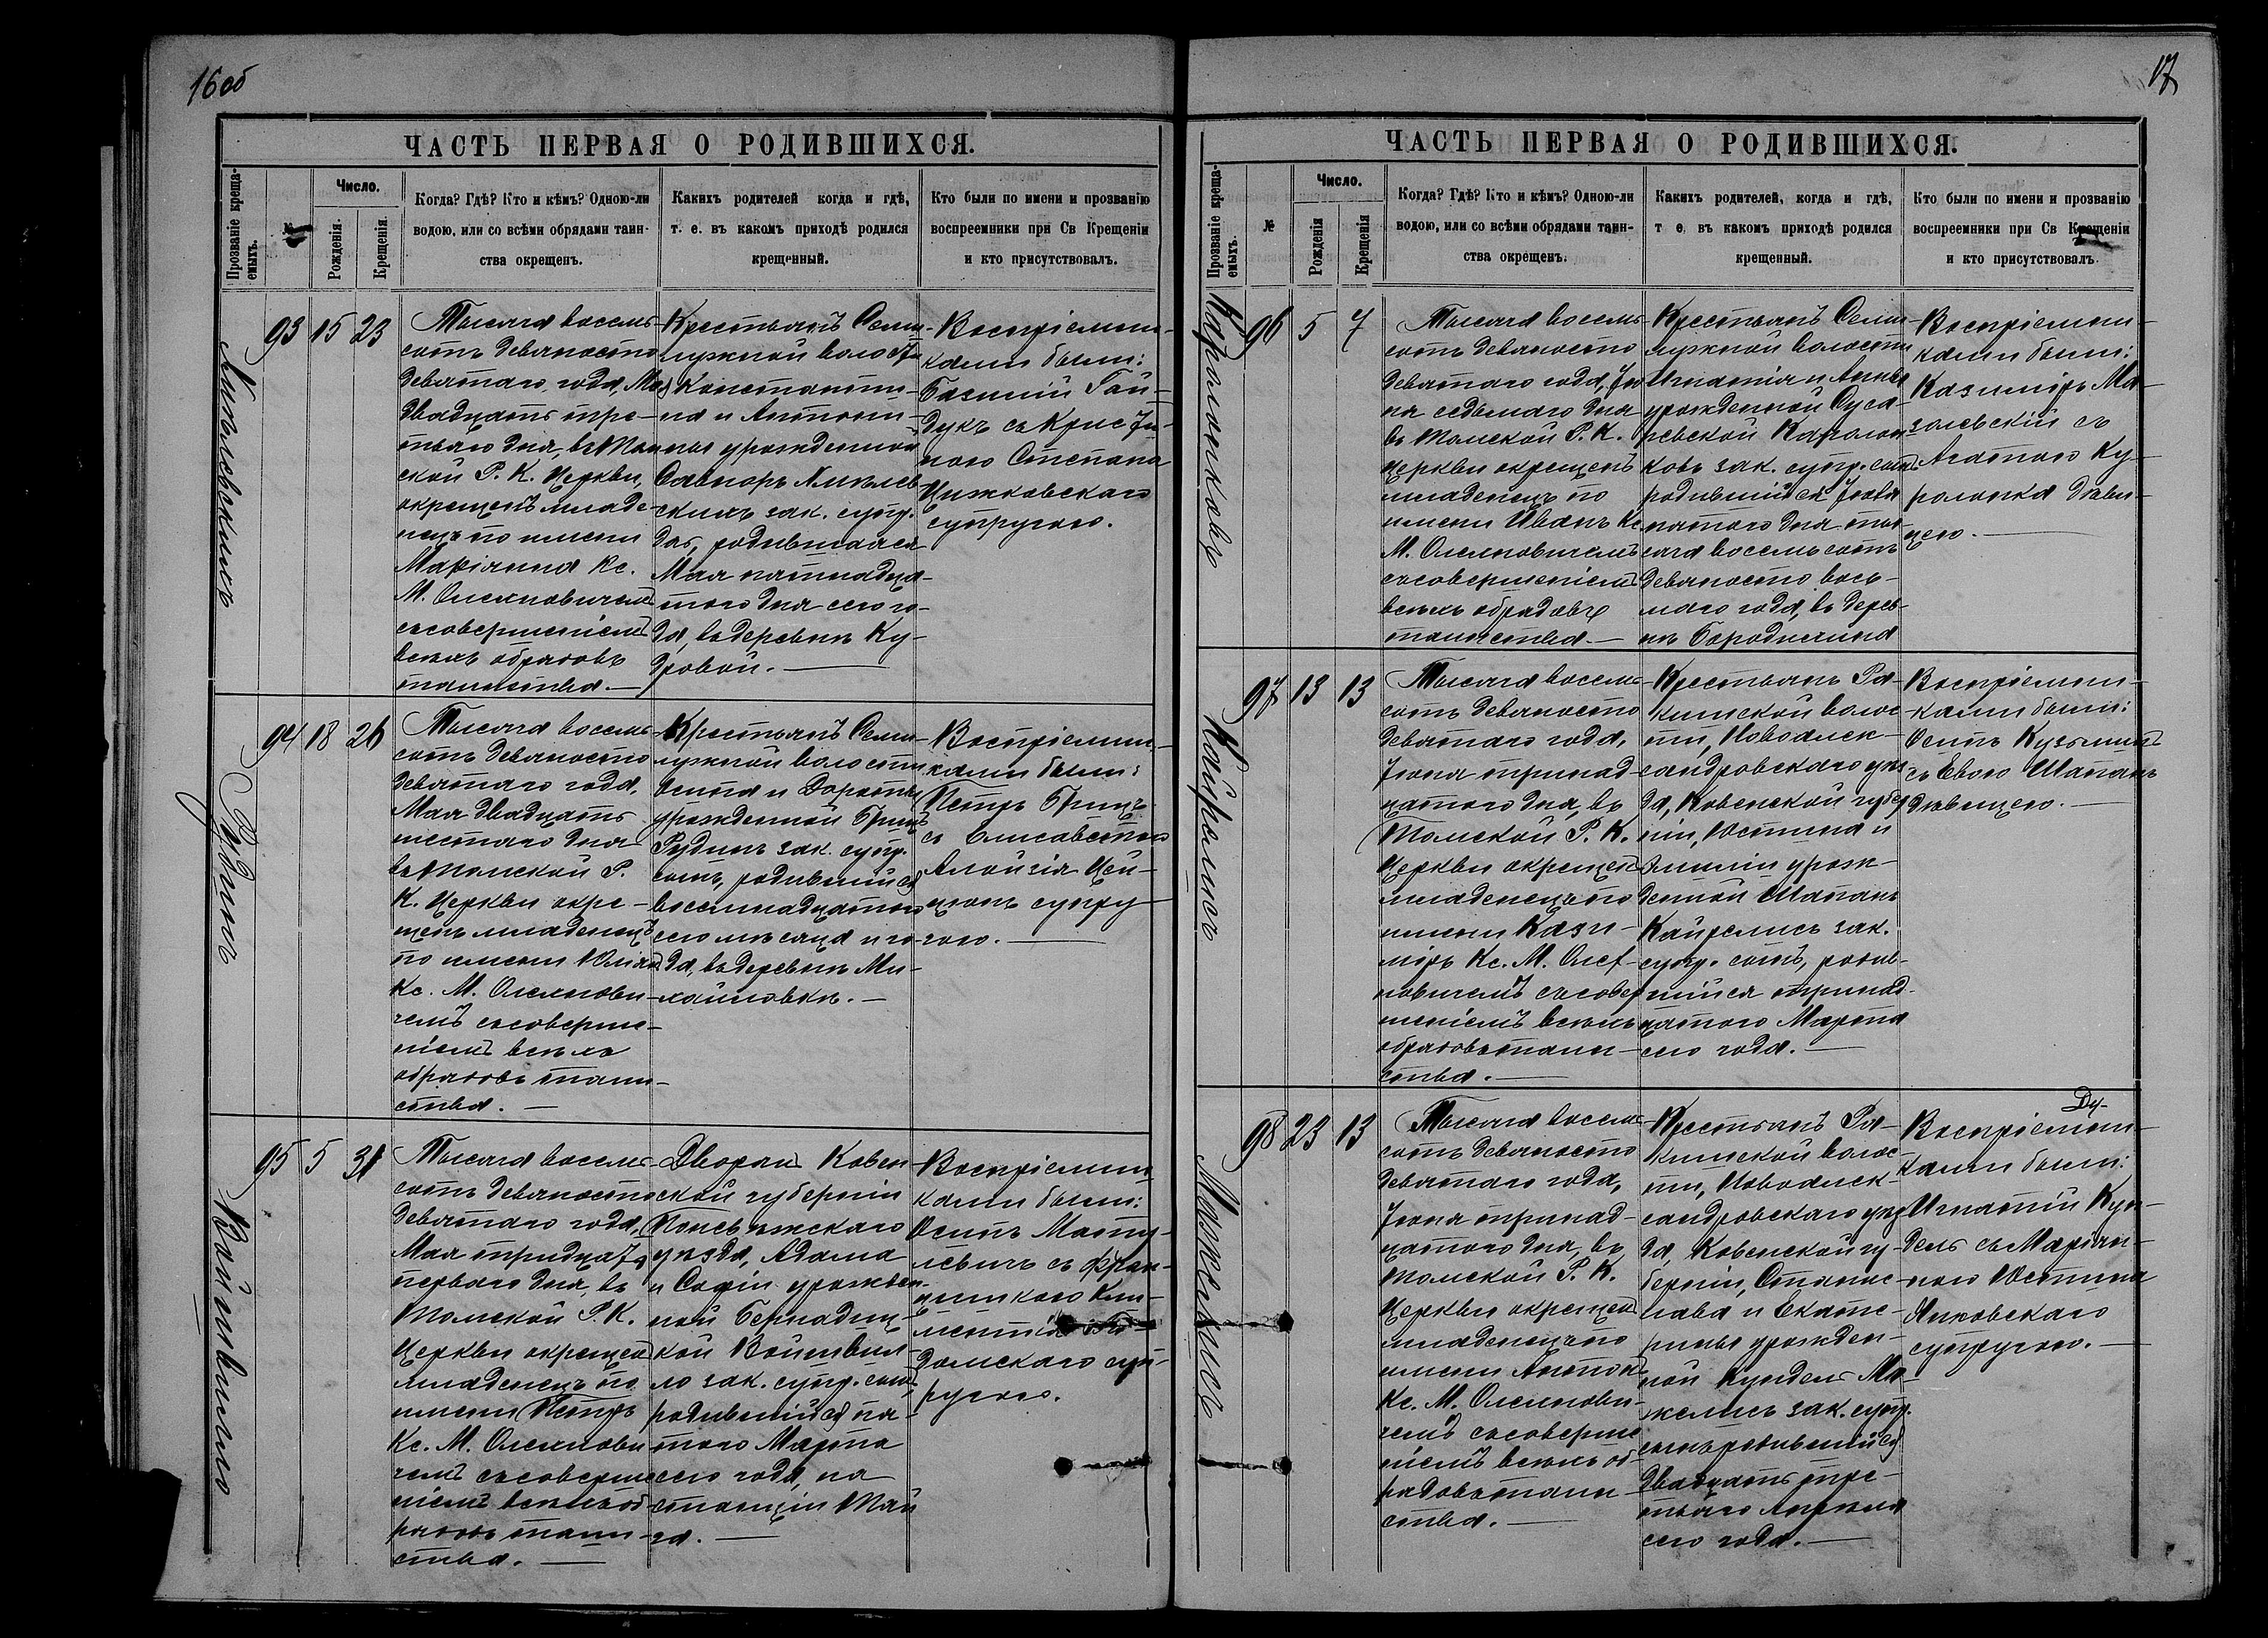 16 об
ЧАСТЬ ПЕРВАЯ О РОДИВШИХСЯ.
Прозваніе креща-
емыхъ.
№
Число.
Рожденія.
Крещенія.
Когда? Гдѣ? Кто и кѣмъ? Одною-ли
водою, или со всѣми обрядами таин-
ства окрещенъ.
Какихъ родителей когда и гдѣ,
т. е. въ какомъ приходѣ родился
крещенный.
Кто были по имени и прозванію
воспреемники при Св Крещеніи
и кто присутствовалъ.
93 15 23
Тысяча восемь-
сотъ девяносто
девятаго года, Мая
двадцать тре-
тьяго дня, въ Том
ской Р. К. Церкви,
окрещенъ младе-
нецъ по имени
Маріанна Кс.
М. Олехновичемъ
съ совершеніемъ
всѣхъ обрядовъ
таинства.—
Крестьянъ Семи-
лужной волости
Константи-
на и Антони-
ны урожденной
зак. супр.
дочь, родившаяся
Мая пятнадца-
таго дня сего го-
да, въ деревнѣ Ку-
дровой.—
Воспріемни-
ками были:
Базилій Гай-
дукъ съ Кристи-
ною Степана
Цижковскаго
супругою.
Рудинъ
94 18 26
Тысяча восемь
сотъ девяносто
девятаго года,
Мая двадцать
шестаго дня
въ Томской Р.
К. Церкви окре-
щенъ младенецъ
по имени Юліанъ
Кс. М. Олехнови-
чемъ съ соверше-
ніемъ всѣхъ
обрядовъ таин-
ства.—
Крестьянъ Семи-
лужной волости
Осипа и Дороты
урожденной Бриць
Рудинъ зак. супр.
сынъ, родившійся
восемнадцатаго
сего мѣсяца и го-
да, въ деревнѣ Ми-
хайловкѣ.—
Воспріемни-
ками были:
Петръ Бриць
съ Елисаветою
Алоизія Цей-
супру-
гою.—
Войтвилло
95 5 31
Тысяча восемь-
сотъ девяносто
девятаго года,
Мая тридцать
перваго дня, въ
Томской Р. К.
Церкви окрещенъ
младенецъ по
имени Петръ
Кс. М. Олехнови
чемъ съ соверше
ніемъ всѣхъ об
рядовъ таин-
ства.—
Дворянъ Ковен-
ской губерніи
Поневѣжскаго
уѣзда, Адама
и Софіи урожден
ной Бернадиц-
кой Войтвил-
ло зак. супр. сынъ,
родившійся пя-
таго Марта
сего года, на
станціи Тай
га.—
Воспріемни-
ками были:
Осипъ Мату-
левичъ съ Фран-
цишкою Кли-
ментія
домскаго суп-
ругою.
17
ЧАСТЬ ПЕРВАЯ О РОДИВШИХСЯ.
Прозваніе креща-
емыхъ.
№
Число.
Рожденія
Крещенія
Когда? Гдѣ? Кто и кѣмъ? Одною-ли
водою, или со всѣми обрядами таин-
ства окрещенъ.
Какихъ родителей, когда и гдѣ,
т е. въ какомъ приходѣ родился
крещенный.
Кто были по имени и прозванію
воспреемники при Св Крещеніи
и кто присутствовалъ.
Каролонковъ
96 5 7
Тысяча восемь
сотъ девяносто
девятаго года, Ію
ня седьмаго дня
въ Томской Р. К.
Церкви окрещенъ
младенецъ по
имени Иванъ Кс
М. Олехновичемъ
съ совершеніемъ
всѣхъ обрядовъ
таинства.—
Крестьянъ Семи-
лужной волости
Игнатія и Анны
урожденной Суса-
ревской Каролон
ковъ зак. супр. сынъ
родившійся Іюня
пятаго дня ты-
сяча восемь сотъ
девяносто вось-
маго года, въ дерев-
нѣ Бороднихина
Воспріемни-
ками были:
Казиміръ Ма-
золевскій съ
Агатою Ку-
ролонка дѣви-
цею.—
Кайрелисъ
97 13 13
Тысяча восемь-
сотъ девяносто
девятаго года,
Іюня тринад-
цатаго дня, въ
Томской Р. К.
Церкви окрещенъ
младенецъ по
имени Кази-
міръ Кс. М. Олех-
новичемъ съ совер
шеніемъ всѣхъ
обрядовъ таин-
ства.—
Крестьянъ Ра-
кишской волос
ти, Новоалек-
сандровскаго уѣз
да, Ковенской губер
ніи, Юстина и
Эмиліи урож-
денной Шапанъ
Кайрелисъ зак.
супр. сынъ, родив-
шійся тринад-
цатаго Марта
сего года.—
Воспріемни-
ками были:
Осипъ Кузьминъ
съ Евою Шапанъ
дѣвицею.—
98 23 13
Тысяча восемь
сотъ девяносто
девятаго года,
Іюня тринад-
цатаго дня, въ
Томской Р. К.
Церкви окрещенъ
младенецъ по
имени Антонъ
Кс. М. Олехнови-
чемъ съ соверше
ніемъ всѣхъ об-
рядовъ таин-
ства.—
Крестьянъ Ра-
кишской волос-
ти, Новоалек-
сандровскаго уѣз
да, Ковенской гу-
берніи, Станис-
лава и Екате-
рины урожден-
ной Кундель Ма-
желисъ зак. супр.
сынъ родившійся
двадцать тре-
тьяго Апрѣля
сего года.—
Ду-
Воспріемни-
ками были:
Игнатій Кун-
дель съ Маріан-
ною Юстина
Янковскаго
супругою.—